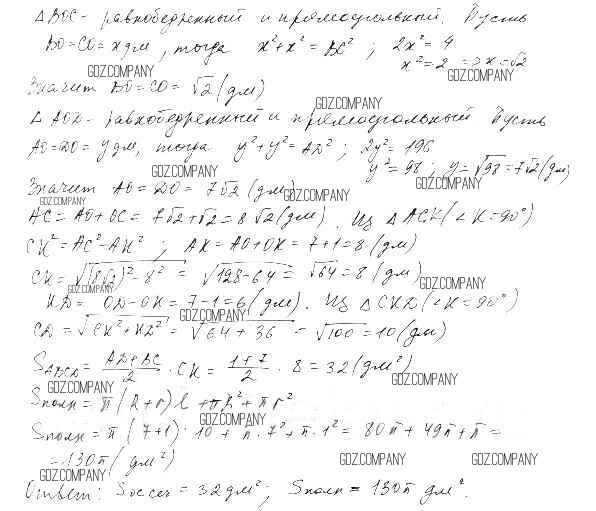 ΔBOC - равнобедренный и прямоугольный. Пусть
BO=CO=x дм, тогда x²+x²=BC²; 2x²=4
x²=2 => x=√2
GDZ.COMPANY GDZ.COMPANY
Значит BO=CO=√2 (дм)
GDZ.COMPANY
ΔAOD - равнобедренный и прямоугольный Пусть
AO=DO=y дм, тогда y²+y²=AD²; 2y²=196
y²=98; y=√98=7√2(дм)
GDZ.COMPANY GDZ.COMPANY
Значит AO=DO=7√2 (дм)
GDZ.COMPANY GDZ.COMPANY
AC=AO+OC=7√2+√2=8√2(дм). Из ΔACK(∠K=90°)
CK²=AC²-AK²; AK=AO+OK=7+1=8(дм)
CK=√(8√2)²-8²=√128-64=√64=8(дм)
GDZ.COMPANY GDZ.COMPANY
KD=OD-OK=7-1=6(дм). Из ΔCKD(∠K=90°)
GDZ.COMPANY
CD=√CK²+KD²=√64+36=√100=10(дм)
S_ABCD=(AD+BC)/2·CK=(1+7)/2·8=32(дм²)
GDZ.COMPANY GDZ.COMPANY
Sполн=π(R+r)l+πR²+πr²
GDZ.COMPANY
Sполн=π(7+1)·10+π·7²+π·1²=80π+49π+π=
=130π(дм²)
GDZ.COMPANY GDZ.COMPANY GDZ.COMPANY
Ответ: Sос.сеч=32дм²; Sполн=130π дм².